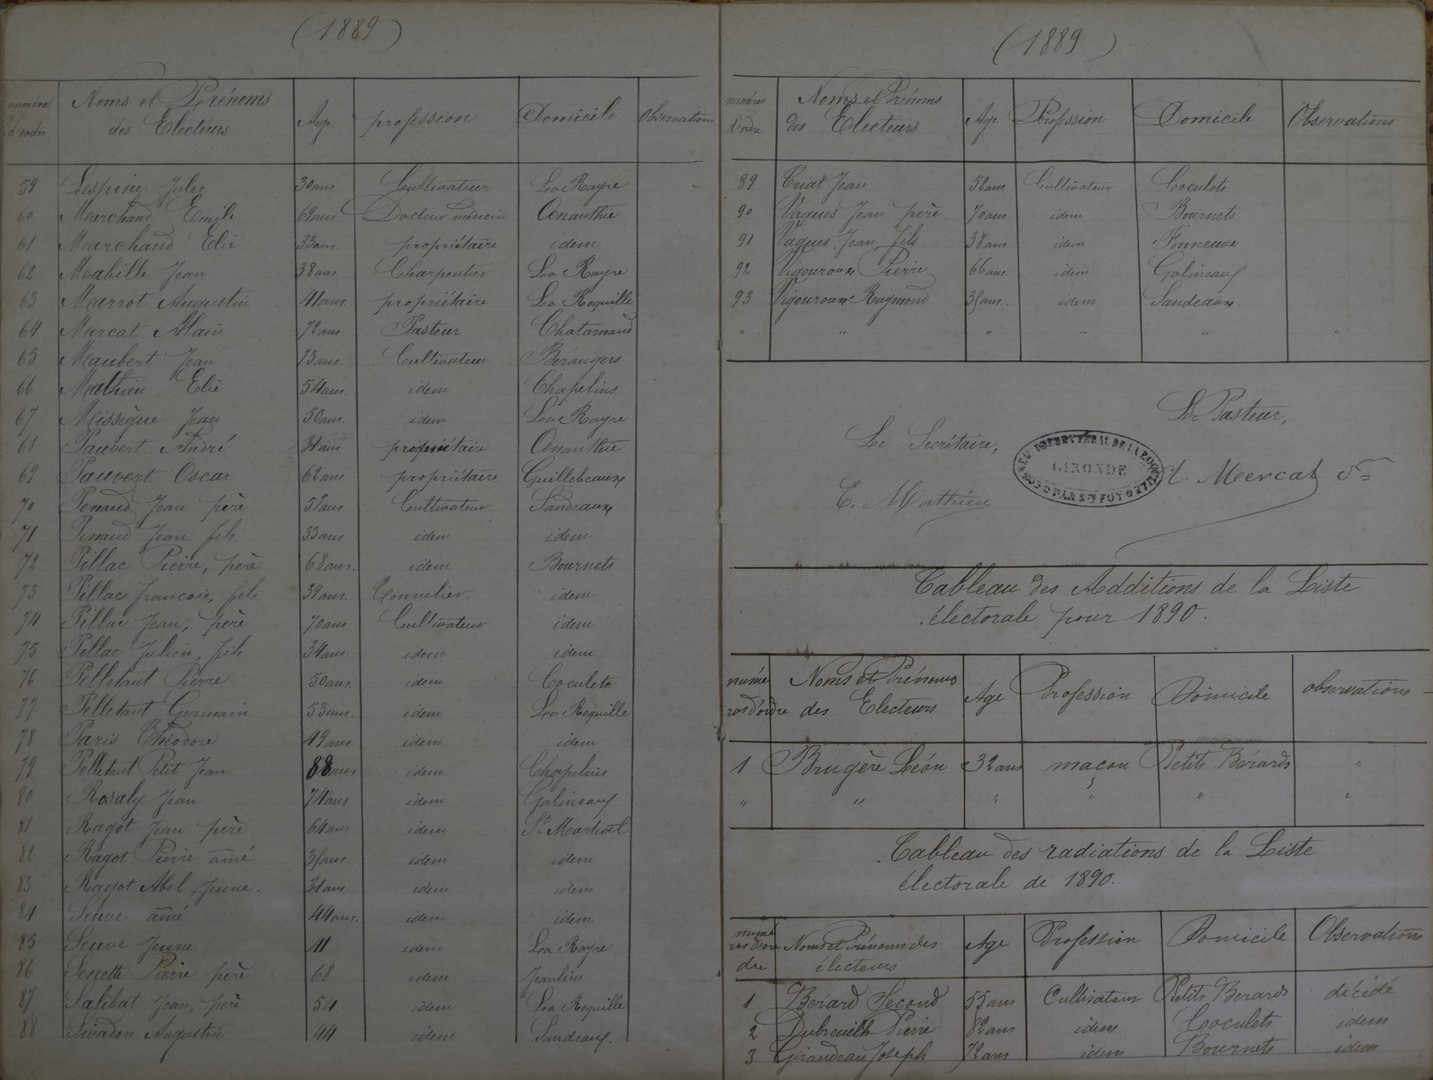 (1889)
numéros d'ordre Noms et Prénoms des Electeurs Age profession Domicile Observations
59 Lespine Jules 30 ans Cultivateur La Rayre
60 Marchand Emile 68 ans Docteur médecin Œnanthie
61 Marchand Elie 33 ans propriétaire idem
62 Mabille Jean 38 ans Charpentier La Rayre
63 Marrot Augustin 41 ans propriétaire La Roquille
64 Mercat Alain 72 ans Pasteur
65 Maubert Jean 73 ans Cultivateur Bérangers
66 Mathieu Elie 54 ans idem Chapelins
67 Missègue Jean 50 ans idem La Rayre
68 Pauvert André propriétaire Œnanthie
69 Pauvert Oscar 62 ans propriétaire Guillebeaux
70 Penaud Jean père Cultivateur Sandeaux
71 Penaud Jean fils 33 ans idem idem
72 Pillac Pierre, père 68 ans idem Bournets
73 Pillac francois, fils 39 ans Tonnelier idem
74 Pillac Jean, père 70 ans Cultivateur idem
75 Pillac Julien, fils 34 ans idem idem
76 Pelletant Pierre 50 ans idem Coculets
77 Pelletant Germain 53 ans idem La Roquille
78 Paris Théodore 49 ans idem idem
79 Pelletant Petit Jean 88 ans idem Chapelins
80 Rosaly Jean 74 ans idem Galineaux
81 Ragot Jean père 64 ans idem St Martial
82 Ragot Pierre aîné idem idem
83 Ragot Abel Jeune. 31 ans idem idem
84 Seuve aîné 44 ans idem idem
85 Seuve Jeune 41 idem La Rayre
86 Senette Pierre père 68 idem Jaulin
87 Salibat Jean, père 54 idem La Roquille
88 Sivadon Augustin 44 idem Sandeaux
(1889)
numéros d'ordre Noms et Prénoms des Electeurs Age Profession Domicile Observations
89 Triat Jean 58 ans Cultivateur Coculets
90 Vaques Jean père 70 ans idem Bournets
91 Vaques Jean, fils 38 ans idem
92 Vigouroux Pierre 66 ans idem Galineaux
93 Vigouroux Raymond idem Sandeaux
" " " " " "
Le Pasteur,
Le Secrétaire,
GIRONDE
A. Mercat
E. Mathieu
Tableau des Additions de la Liste
électorale pour 1890.
numéros d'ordre Noms et Prénoms des Electeurs Age Profession Domicile observations
1 Brugère Léon 32 ans maçon Petits Bérards "
" " " " " "
Tableau des radiations de la Liste
électorale de 1890.
Noms et Prénoms des électeurs Age Profession Domicile Observations
1 Bérard Second 55 ans Cultivateur Petits Berards décédé
2 Dubreuilh Pierre 82 ans idem Coculets idem
3 Girandeau Joseph 72 ans idem Bournets idem